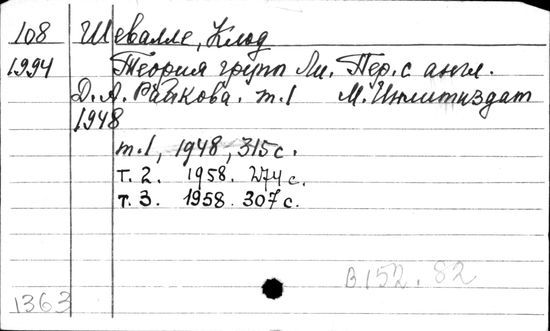 108 Шевалле, Клод
1994 Теория групп Ли. Пер. с англ.
Д. А. Райкова. т. 1 М. Инлитиздат
1948
т. 1, 1948, 315 с.
т. 2. 1958. 274 с.
т. 3. 1958. 307 с.
В 152.82
1363